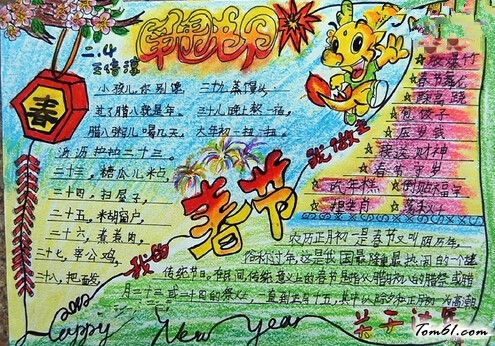 二.4
春
小孩儿你别馋
过了腊八就是年。
腊八粥儿喝几天,
沥沥拉拉二十三。
二十三,糖瓜儿粘,
二十四,扫屋子,
二十五,糊窗户
二十六,煮煮肉,
二十七,宰公鸡,
二十八,把面
二十九,蒸馒头
三十儿晚上熬一宿,
大年初一扭一扭。
我的
春节
我做主
放爆竹
春节舞龙
踩高跷
包饺子
压岁钱
接送财神
春节守岁
吃年糕
倒贴福字
农历正月初一是春节又叫阴历年,
俗称过年,这是我国最隆重最热闹的一个
传统节日。在民间,传统意义上的春节是指从腊月初八的腊祭或腊
月二十三或二十四的祭灶,一直到正月十五,其中以除夕和正月初一为高潮
Happy New Year
Tom61.com